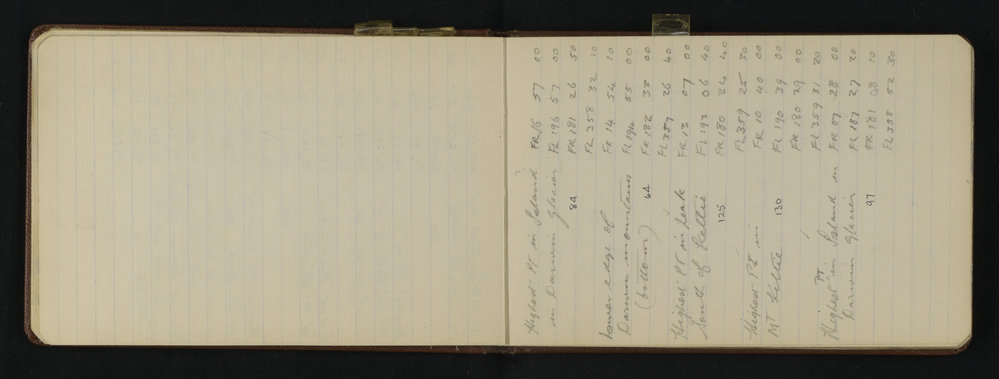 Highest PT in Island FR 15 57 00
in Darwin Glacier FL 196 57 00
84 FR 181 26 50
FL 358 32 10
Lower edge of FR 14 54 10
Darwin mountains FL 194 55 00
(bottom) 64 FR 182 38 00
FL 357 26 40
Highest PT in peak FR 13 07 00
South of Kelties FL 193 06 40
125 FR 180 24 40
FL 359 25 30
Highest PT in FR 10 40 00
MT Keltie 130 FL 190 39 00
FR 180 29 00
FL 359 31 20
Highest PT in Island in FR 07 28 00
Darwin Glacier FL 187 27 20
97 FR 181 08 10
FL 358 52 30